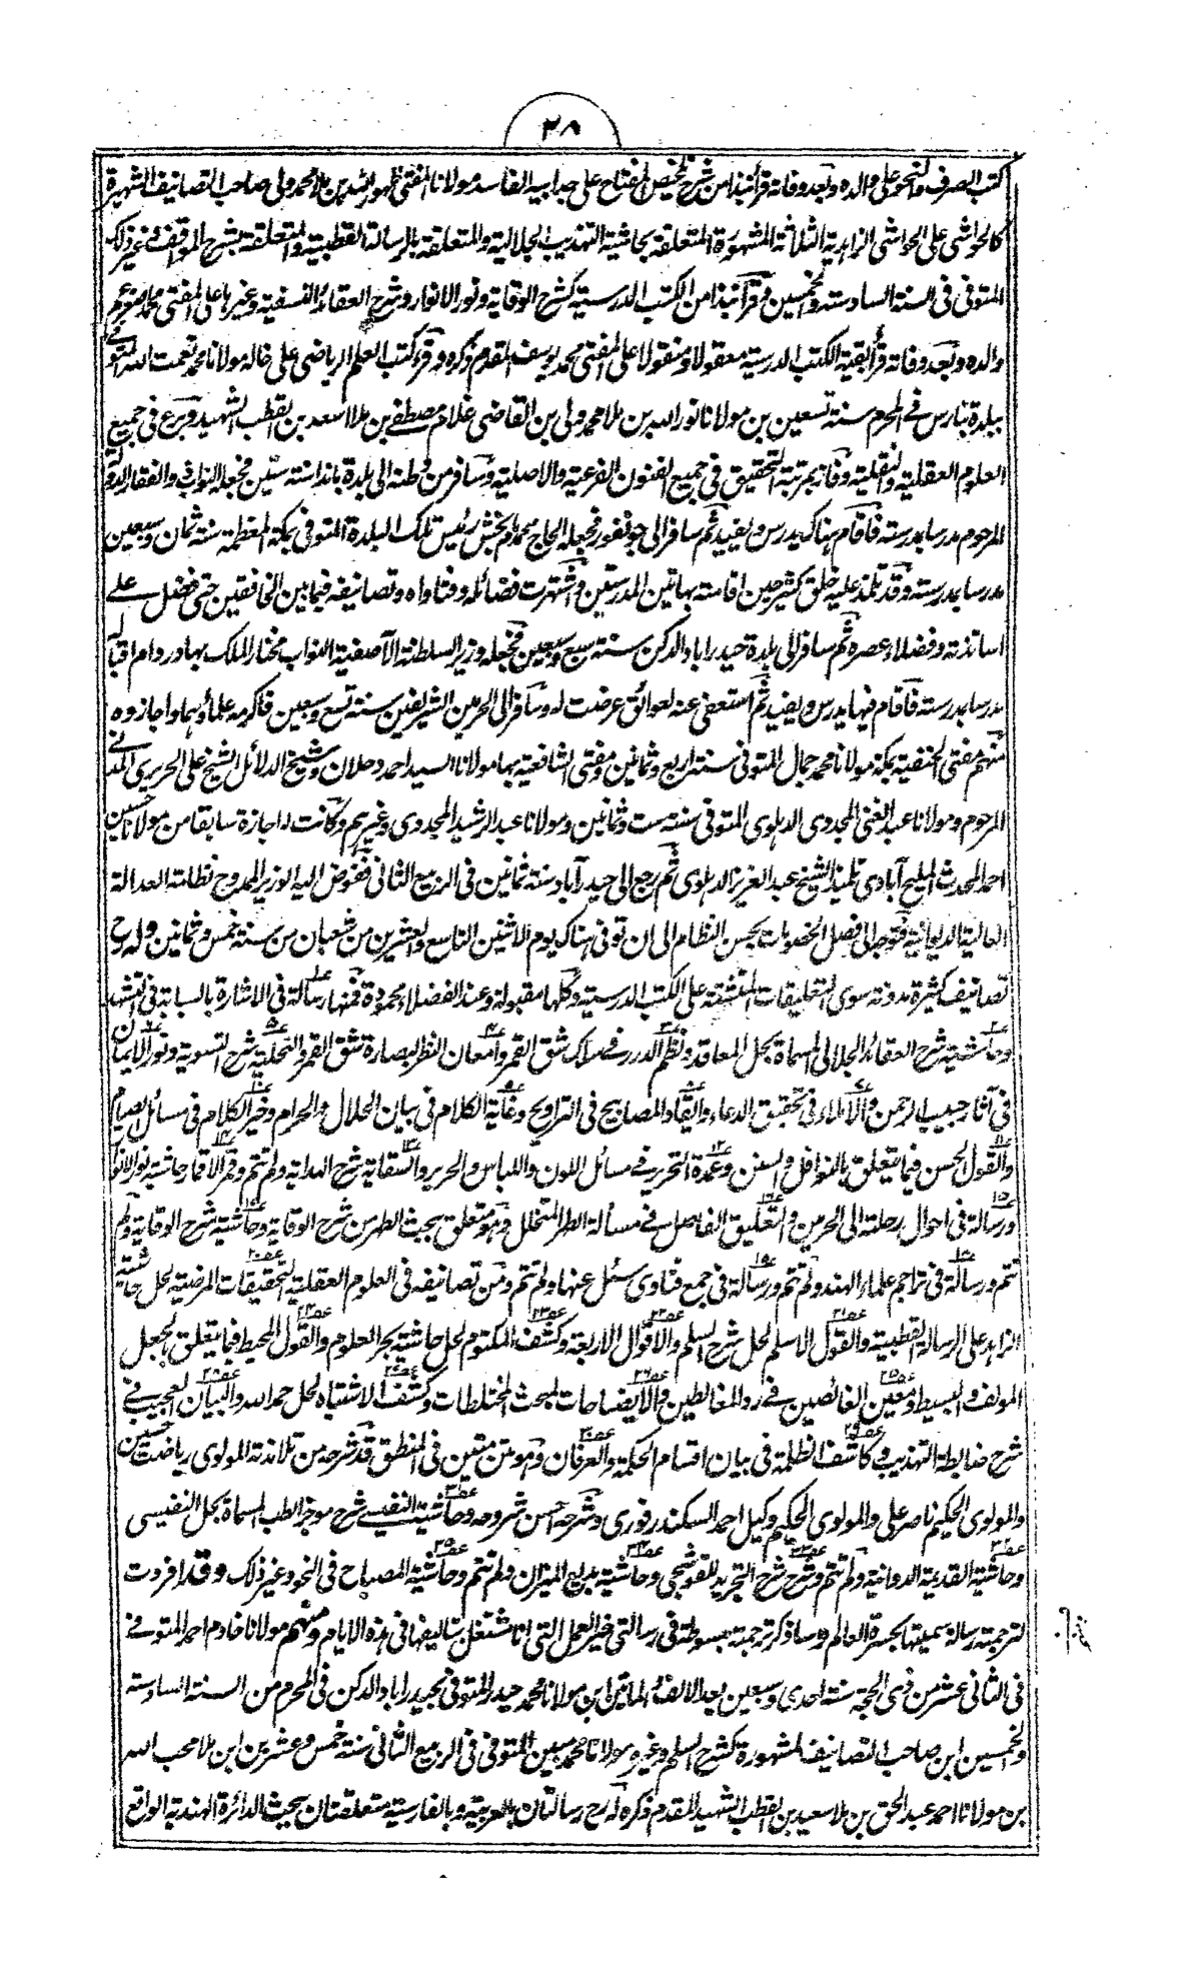 ٢٨
كتب الصرف والنحو على والده وبعد وفاته قرأ نبذا من شرح تلخيص المفتاح على جد ابيه الفاسد مولانا المفتى ظهور الله بن ملا محمد ولى صاحب التصانيف الشهيرة
كالحواشى على الحواشى الزاهدية الثلاثة المشهورة المتعلقة بحاشية التهذيب الجلالية والمتعلقة بالرسالة القطبية والمتعلقة بشرح المواقف وغير ذلك
المتوفى فى السنة السادسة والخمسين وقرأ نبذا من الكتب الدرسية كشرح الوقاية ونور الانوار وشرح العقائد النسفية وغيرها على المفتى محمد اصغر عم
والده وبعد وفاته قرأ بقية الكتب الدرسية معقولا ومنقولا على المفتى محمد يوسف المقدم ذكره وقرء كتب العلم الرياضى على خاله مولانا محمد نعمت الله المتوفى
ببلدة بنارس فى المحرم سنة تسعين بن مولانا نور الله بن ملا محمد ولى بن القاضى غلام مصطفى بن ملا اسعد بن القطب الشهيد وبرع فى جميع
العلوم العقلية والنقلية وفاز بمرتبة التحقيق فى جميع الفنون الفرعية والاصلية وسافر من وطنه الى بلدة باندا سنة ستين فجعله النواب ذو الفقار الدولة
المرحوم مدرسا بمدرسته فاقام هناك يدرس ويفيد ثم سافر الى جونفور فجعله الحاج محمد امام بخش رئيس تلك البلدة المتوفى بمكة المعظمة سنة ثمان وسبعين
مدرسا بمدرسته وقد تلمذ عليه خلق كثير حين اقامته بهاتين المدرستين واشتهرت فضائله وفتاواه وتصانيفه فيما بين الخافقين حتى فضل على
اساتذته وفضلاء عصره ثم سافر الى بلدة حيدراباد الدكن سنة سبع وسبعين فجعله وزير السلطنة الآصفية النواب مختار الملك بهادر دام اقباله
مدرسا بمدرسته فاقام فيها يدرس ويفيد ثم استعفى عنه لعوائق عرضت له وسافر الى الحرمين الشريفين سنة تسع وسبعين فاكرمه علماؤهما واجازوه
منهم مفتى الحنفية بمكة مولانا محمد جمال المتوفى سنة اربع وثمانين ومفتى الشافعية بها مولانا السيد احمد دحلان وشيخ الدلائل الشيخ على الحريرى المدنى
المرحوم ومولانا عبد الغنى المجددى الدهلوى المتوفى سنة ست وثمانين ومولانا عبد الرشيد المجددى وغيرهم وكانت له اجازة سابقا من مولانا حسين
احمد المحدث المليح آبادى تلميذ الشيخ عبد العزيز الدهلوى ثم رجع الى حيدرآباد سنة ثمانين فى الربيع الثانى ففوض اليه الوزير الممدوح نظامة العدالة
العالية الديوانية فتوجه الى فصل الخصومات بحسن النظام الى ان توفى هناك يوم الاثنين التاسع والعشرين من شعبان من سنة خمس وثمانين وله رح
تصانيف كثيرة مدونة سوى التعليقات المتشتتة على الكتب الدرسية وكلها مقبولة وعند الفضلاء محمودة فمنها رسالة فى الاشارة بالسبابة فى التشهد
وحاشية شرح العقائد الجلالى المسماة بحل المعاقد ونظم الدرر فى سلك شق القمر وامعان النظر لبصارة شق القمر والتحلية شرح التسوية ونور الايمان
فى آثار حبيب الرحمن والاملاء فى تحقيق الدعاء وايقاد المصابيح فى التراويح وغاية الكلام فى بيان الحلال والحرام وخير الكلام فى مسائل الصيام
والقول الحسن فيما يتعلق بالنوافل والسنن وعمدة التحرير فى مسائل اللون واللباس والحرير والسقاية شرح الهداية ولم تتم وقمر الاقمار حاشية نور الانوار
ورسالة فى احوال رحلته الى الحرمين والتعليق الفاصل فى مسألة الطهر المتخلل وهو متعلق ببحث الطهر من شرح الوقاية وحاشية شرح الوقاية ولم
تتم ورسالة فى تراجم علماء الهند ولم تتم ورسالة فى جمع فتاوى سئل عنها ولم تتم ومن تصانيفه فى العلوم العقلية التحقيقات المرضية لحل حاشية
الزاهد على الرسالة القطبية والقول الاسلم لحل شرح السلم والاقوال الاربعة وكشف المكتوم لحل حاشية بحر العلوم والقول المحيط فيما يتعلق بالجعل
المؤلف والبسيط ومعين الغائصين فى رد المغالطين والايضاحات لمبحث المختلطات وكشف الاشتباه لحل حمد الله والبيان العجيب فى
شرح ضابطة التهذيب وكاشف الظلمة فى بيان اقسام الحكمة والعرفان وهو متن متين فى المنطق قد شرحه من تلامذته المولوى رياضت حسين
والمولوى الحكيم ناصر على والمولوى الحكيم وكيل احمد السكندرفورى وشرحه احسن شروحه وحاشية النفيسى شرح موجز الطب المسماة بحل النفيسى
وحاشية القديمة الدوانية ولم تتم وشرح شرح التجريد للقوشجى وحاشية بديع الميزان ولم تتم وحاشية المصباح فى النحو وغير ذلك وقد افردت
لترجمته رسالة سميتها بحسرة العالم وساذكر ترجمته مبسوطة فى رسالتى خير العمل التى انا مشتغل بتاليفها فى هذه الايام ومنهم مولانا خادم احمد المتوفى
فى الثانى عشر من ذى الحجة سنة احدى وسبعين بعد الالف والماتين ابن مولانا محمد حيدر المتوفى بحيدراباد الدكن فى المحرم من السنة السادسة
والخمسين ابن صاحب التصانيف المشهورة كشرح السلم وغيره مولانا محمد مبين المتوفى فى الربيع الثانى سنة خمس وعشرين ابن ملا محب الله
بن مولانا احمد عبد الحق بن ملا سعيد بن القطب الشهيد المقدم ذكره له رح رسالتان بالعربية وبالفارسية متعلقتان ببحث الدائرة الهندية الواقع